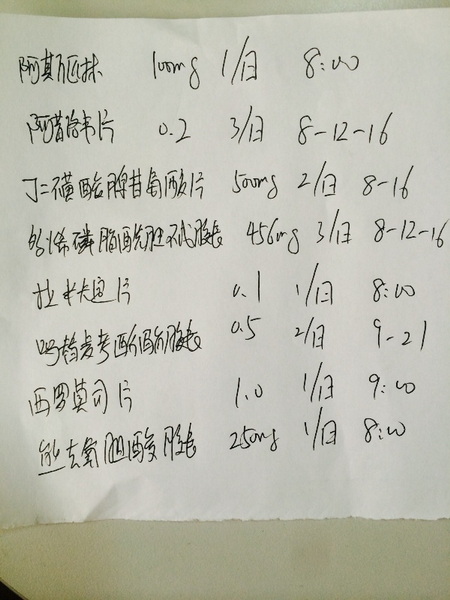 阿斯匹林 100mg 1/日 8:00
阿昔洛韦片 0.2 3/日 8-12-16
丁二磺酸腺苷蛋氨酸片 500mg 2/日 8-16
多烯磷脂酰胆碱胶囊 456mg 3/日 8-12-16
拉米夫定片 0.1 1/日 8:00
吗替麦考酚酯胶囊 0.5 2/日 9-21
西罗莫司片 1.0 1/日 9:00
熊去氧胆酸胶囊 250mg 1/日 8:00